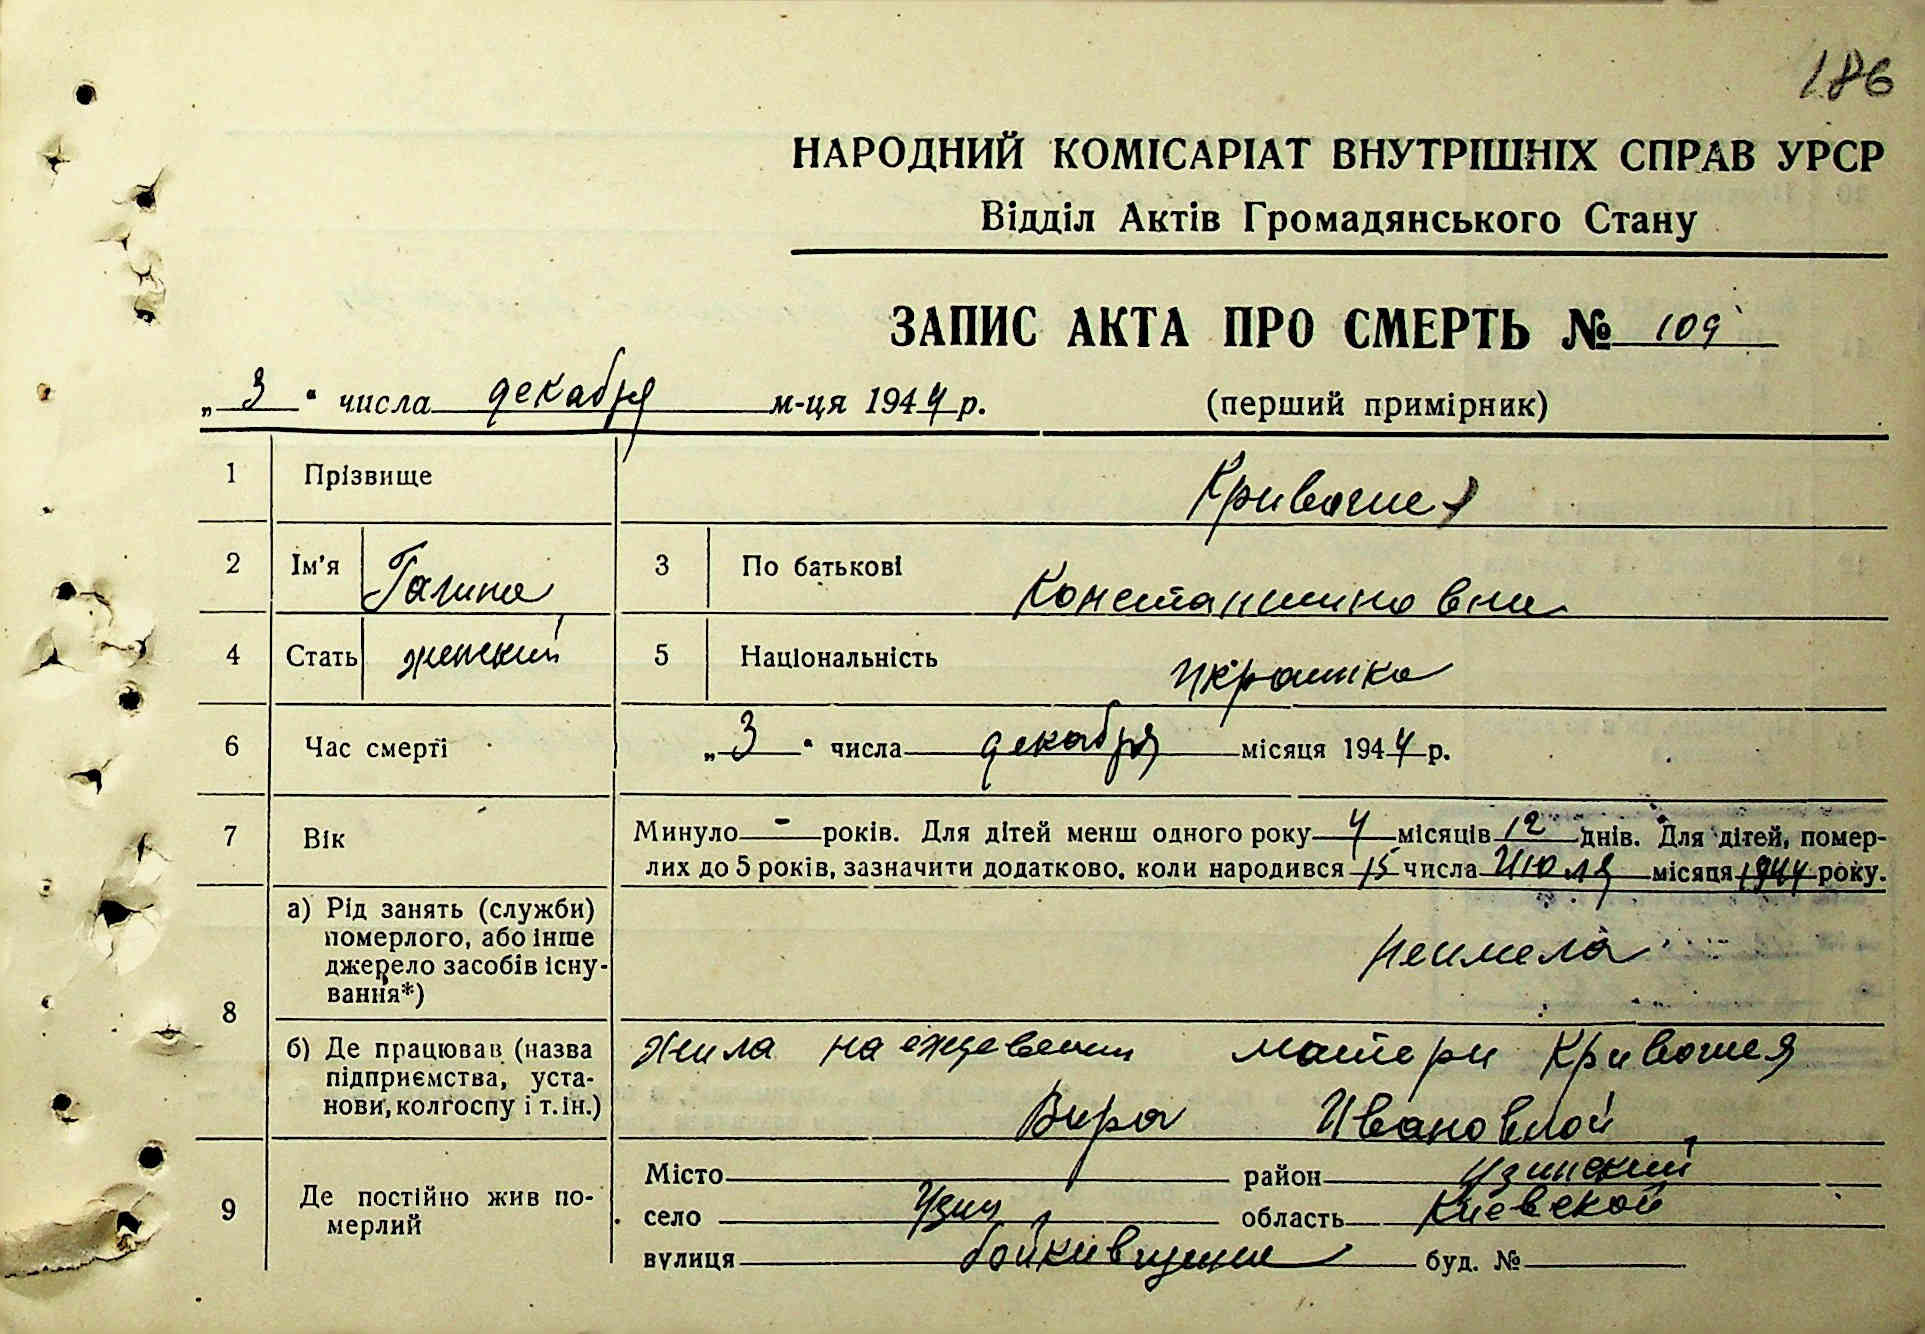 186
НАРОДНИЙ КОМІСАРІАТ ВНУТРІШНІХ СПРАВ УРСР
Відділ Актів Громадянського Стану
ЗАПИС АКТА ПРО СМЕРТЬ № 109
„ 3 “ числа декабря м-ця 1944 р. (перший примірник)
1 Прізвище Кривошея
2 Ім'я Галина 3 По батькові Константиновна
4 Стать женский 5 Національність Украинка
6 Час смерті „ 3 “ числа декабря місяця 1944 р.
7 Вік Минуло - років. Для дітей менш одного року 4 місяців 12 днів. Для дітей, помер-
лих до 5 років, зазначити додатково, коли народився 15 числа Июля місяця 1944 року.
8 а) Рід занять (служби)
померлого, або інше
джерело засобів існу-
вання*) неимела
б) Де працював (назва
підприємства, уста-
нови, колгоспу і т. ін.) Жила на иждевении матери Кривошея
Вира Ивановной
9 Де постійно жив по-
мерлий
Місто район Узинский
село Узин область Киевской
вулиця бойкивщина буд. №